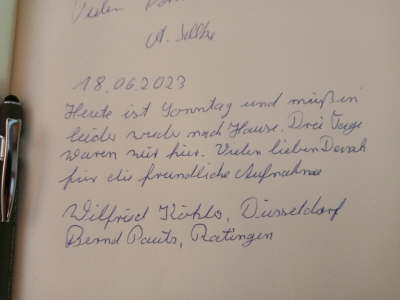 Vielen
18.06.2023
Heute ist Sonntag und müßen
leider wieder nach Hause. Drei Tage
waren wir hier. Vielen lieben Dank
für die freundliche Aufnahme
Wilfried Köhls, Düsseldorf
Bernd Pauts, Ratingen